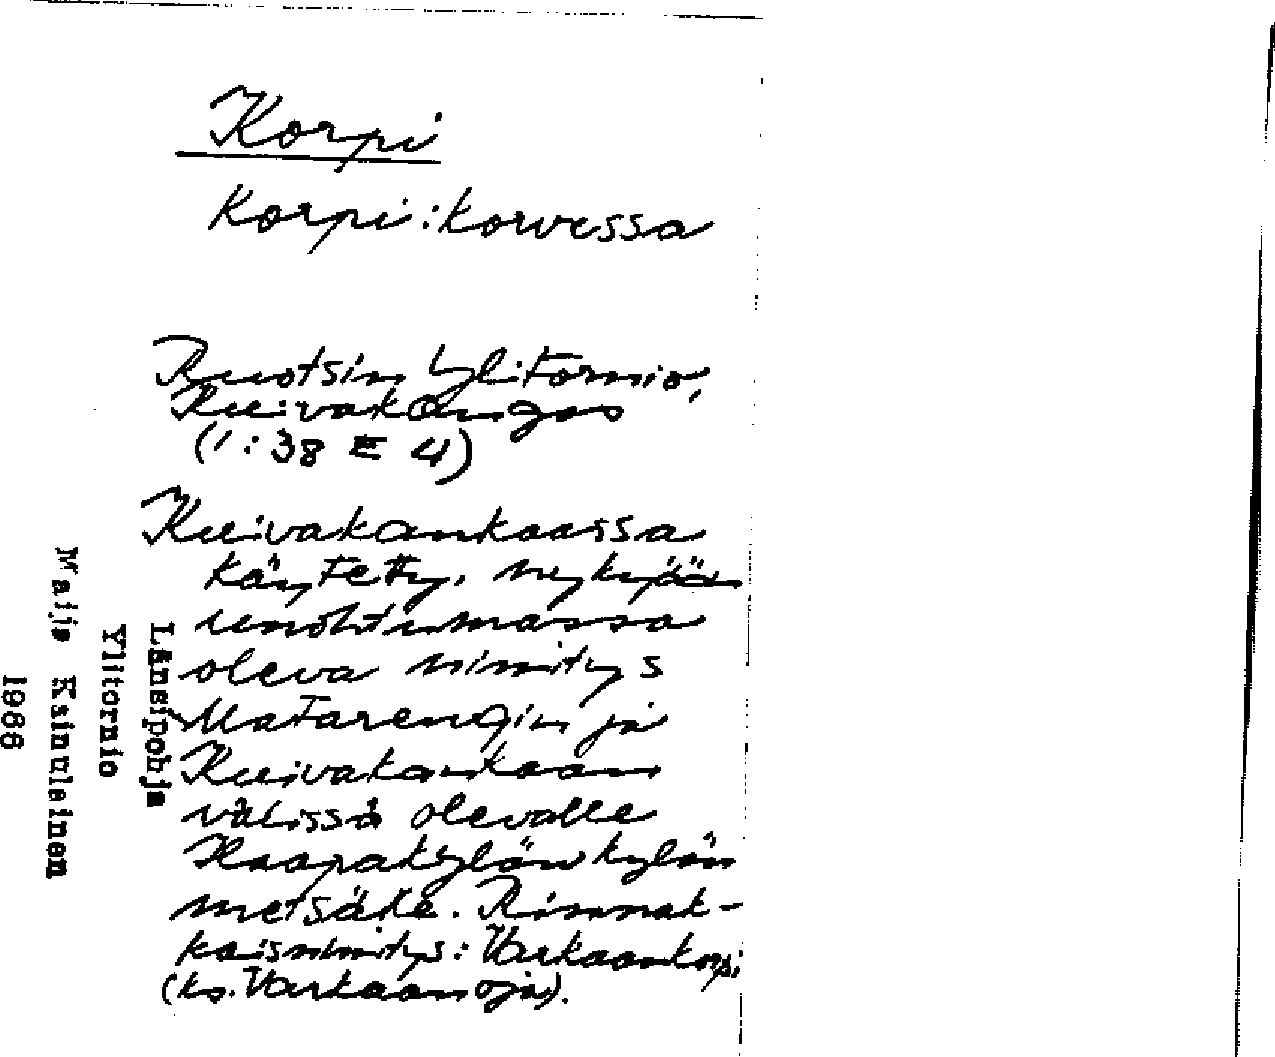 Korpi
Korpi : korvessa
Ruotsin Ylitornio,
Kuivakangas
(1:38 E 4)
Kuivakankaassa
käytetty, nykyään
unohtumassa
oleva nimitys
Matarengin ja
Kuivakankaan
välissä olevalle
Haapakylän kylän
metsälle. Rinnak-
kaisnimitys: Varkaankorpi
(ks. Varkaanoja).
Länsipohja
Ylitornio
Maija Ksinuleinen
1966